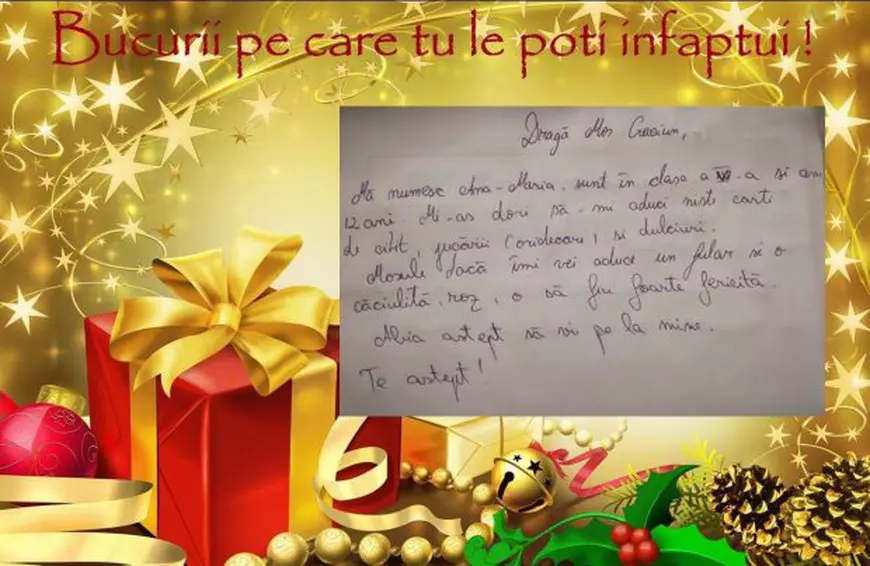 Bucurii pe care tu le poti infaptui !
Dragă Mos Craciun,
Mă numesc Ana-Maria, sunt în clasa a VI-a si am
12 ani. Mi-as dori să-mi aduci niste carti
de citit, jucării (oridecare) si dulciuri.
Mosule dacă îmi vei aduce un fular si o
căciulită, roz, o să fiu foarte fericită.
Abia astept să vi pe la mine.
Te astept!